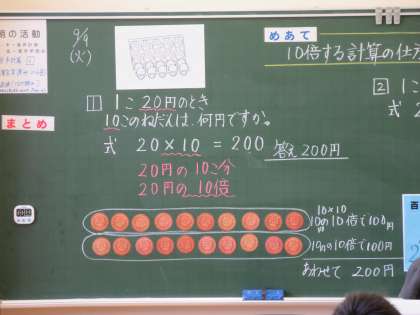 9/9
(火)
めあて
10倍する計算の仕方
の活動
まとめ
1 1こ 20円のとき
10このねだんは、何円ですか。
式 20×10 = 200 答え 200円
20円の10こ分
20円の10倍
10×10
10円の10倍で100円
10円の10倍で100円
あわせて 200円
2 1こ
百
2